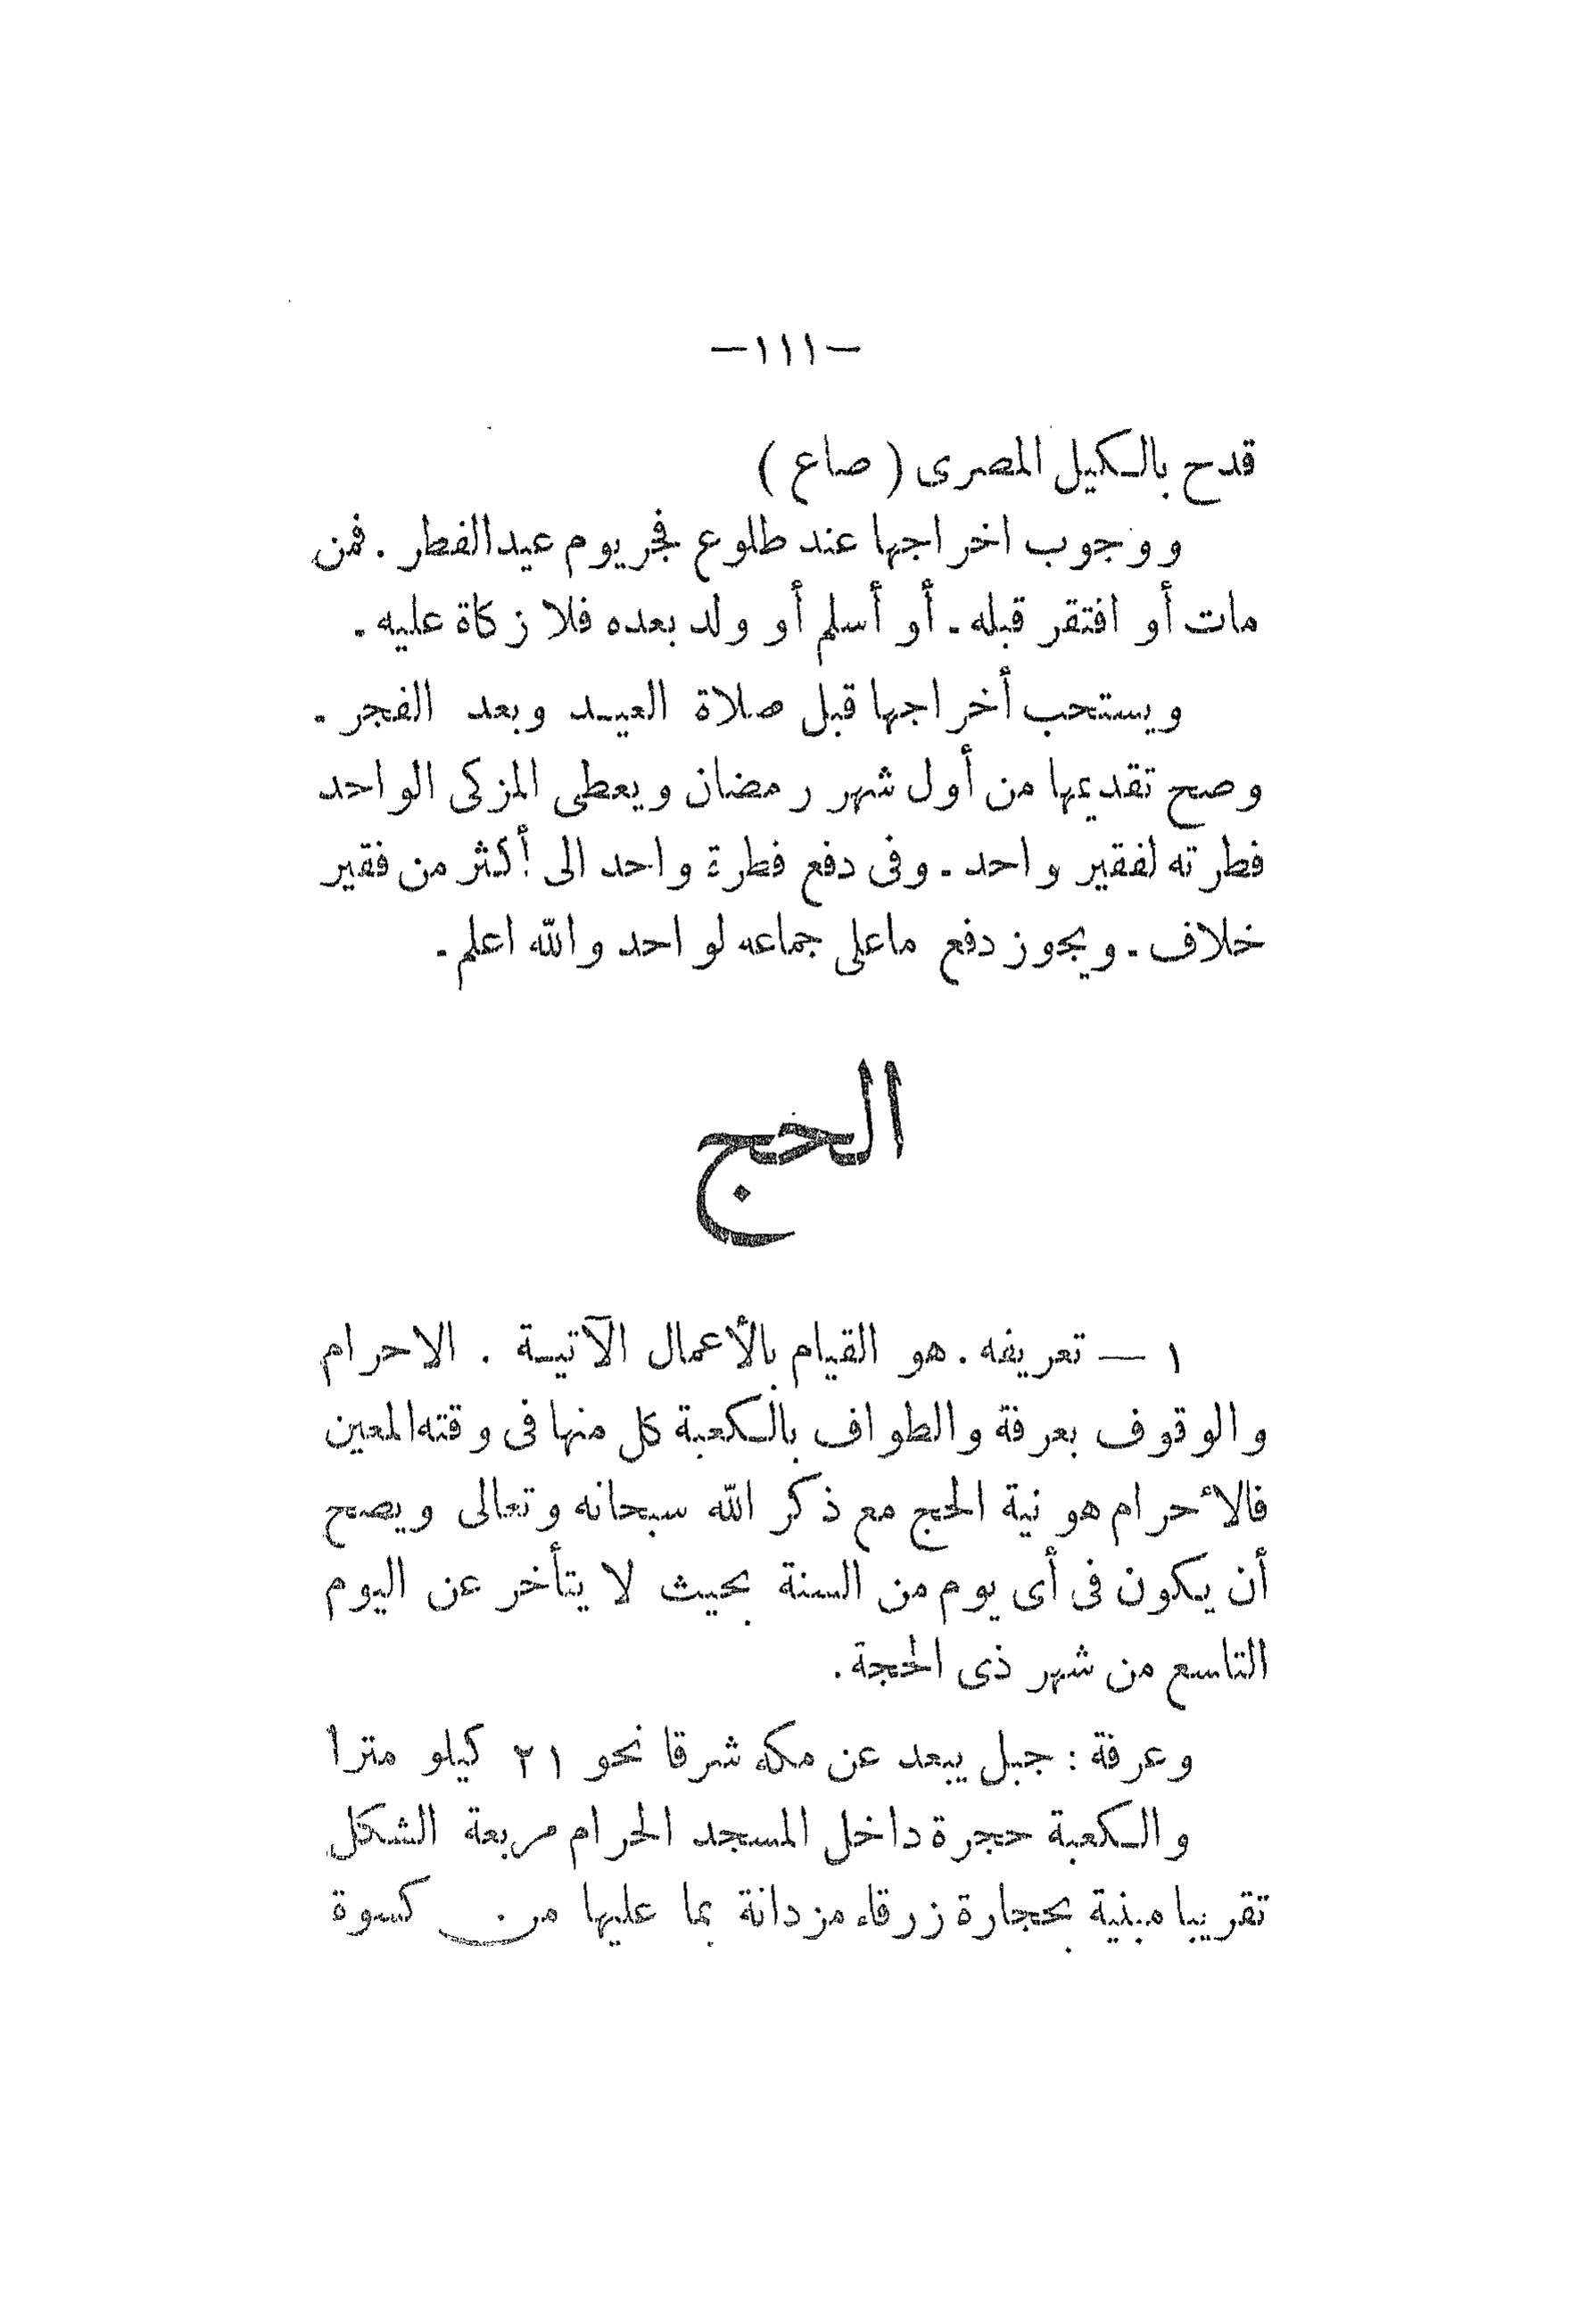 —١١١—
قدح بالكيل المصرى ( صاع )
ووجوب اخراجها عند طلوع فجر يوم عيد الفطر . فمن
مات أو افتقر قبله . أو أسلم أو ولد بعده فلا زكاة عليه .
ويستحب أخراجها قبل صلاة العيد وبعد الفجر .
وصح تقديمها من أول شهر رمضان ويعطى المزكى الواحد
فطرته لفقير واحد . وفى دفع فطرة واحد الى أكثر من فقير
خلاف . ويجوز دفع ماعلى جماعه لواحد والله اعلم .
الحج
١ — تعريفه . هو القيام بالأعمال الآتية . الاحرام
والوقوف بعرفة والطواف بالكعبة كل منها فى وقته المعين
فالأحرام هو نية الحج مع ذكر الله سبحانه وتعالى ويصح
أن يكون فى أى يوم من السنة بحيث لا يتأخر عن اليوم
التاسع من شهر ذى الحجة .
وعرفة : جبل يبعد عن مكه شرقا نحو ٢١ كيلو مترا
والكعبة حجرة داخل المسجد الحرام مربعة الشكل
تقريبا مبنية بحجارة زرقاء مزدانة بما عليها من كسوة